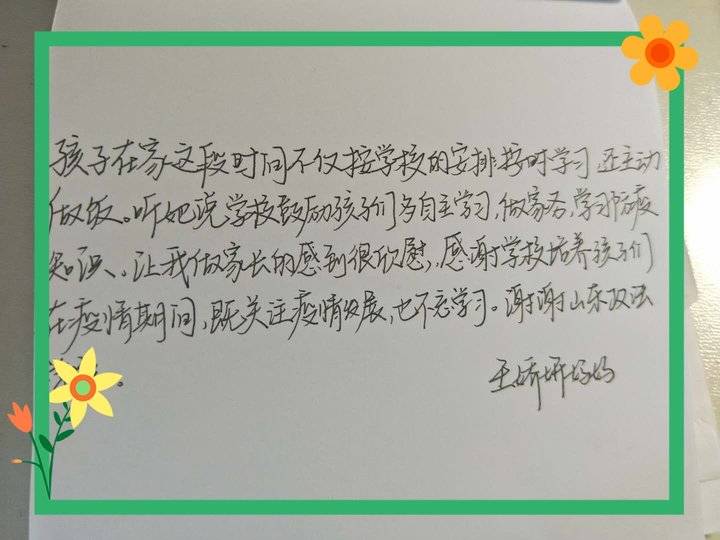 孩子在家这段时间不仅按学校的安排按时学习 还主动
做饭。听她说学校鼓励孩子们多自主学习,做家务,学习防疫
知识、让我做家长的感到很欣慰,感谢学校培养孩子们
在疫情期间,既关注疫情发展,也不忘学习。谢谢山东政法
。
王娇妍妈妈